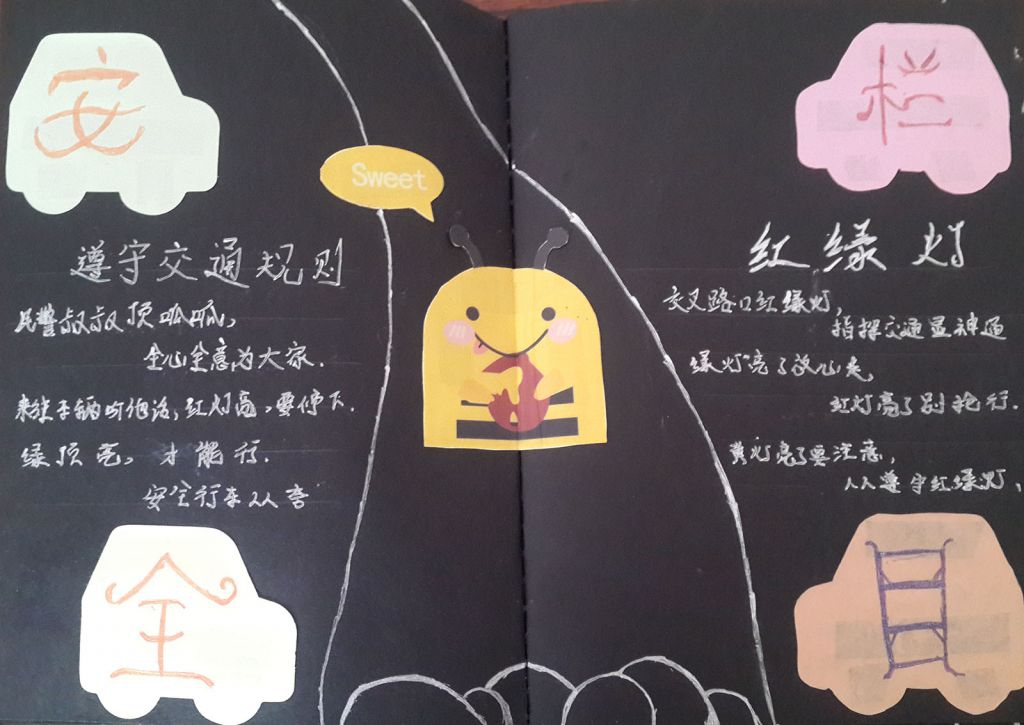 安
全
栏
目
Sweet
遵守交通规则
民警叔叔顶呱呱,
全心全意为大家.
来往车辆听他话,红灯亮,要停下.
绿顶亮,才能行.
安全行车人人夸
红绿灯
交叉路口红绿灯,
指挥交通显神通
绿灯亮了放心走,
红灯亮了别抢行.
黄灯亮了要注意,
人人遵守红绿灯,